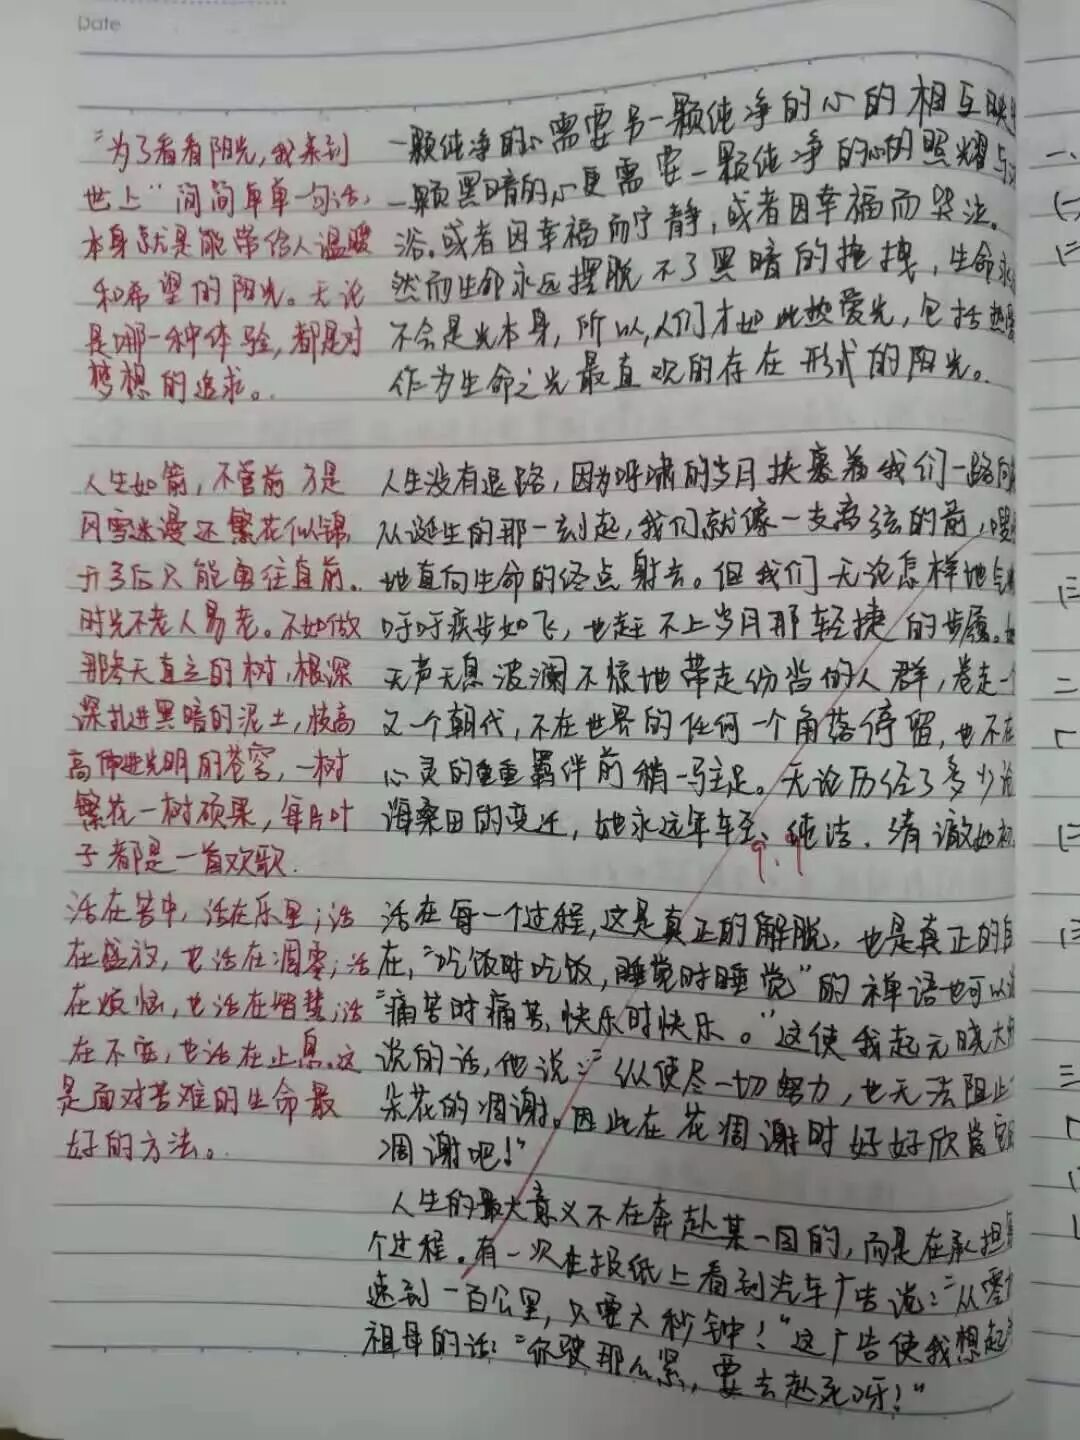 Date
"为了看看阳光,我来到
世上"简简单单一句话,
本身就是能带给人温暖
和希望的阳光。无论
是哪一种体验,都是对
梦想的追求。
一颗纯净的心需要另一颗纯净的心的相互映
一颗黑暗的心更需要一颗纯净的心的照耀与
浴。或者因幸福而宁静,或者因幸福而哭泣。
然而生命永远摆脱不了黑暗的拖拽,生命永
不会是光本身,所以,人们才如此热爱光,包括热爱
作为生命之光最直观的存在形式的阳光。
人生如箭,不管前方是
风雪迷漫还繁花似锦,
开弓后只能勇往直前。
时光不老人易老。不如做
那冬天直立的树,根深
深扎进黑暗的泥土,枝高
高伸进光明的苍穹,一树
繁花一树硕果,每片叶
子都是一首欢歌.
人生没有退路,因为呼啸的岁月挟裹着我们一路向
从诞生的那一刻起,我们就像一支离弦的前,嗖
地直向生命的终点射去。但我们无论怎样地气
吁吁疾步如飞,也赶不上岁月那轻捷的步履。她
无声无息波澜不惊地带走纷沓的人群,卷走一个
又一个朝代,不在世界的任何一个角落停留,也不在
心灵的重重羁伴前稍一驻足。无论历经了多少沧
海桑田的变迁,她永远年轻、纯洁、清澈如初
9.9
活在苦中,活在乐里;活
在盛放,也活在凋零;活
在烦恼,也活在智慧;活
在不安,也活在止息。这
是面对苦难的生命最
好的方法。
活在每一个过程,这是真正的解脱,也是真正的自
在,"吃饭时吃饭,睡觉时睡觉"的禅语也可以
"痛苦时痛苦,快乐时快乐。"这使我起元晓大师
说的话,他说:"纵使尽一切努力,也无法阻止
朵花的凋谢。因此在花凋谢时好好欣赏它
凋谢吧!"
人生的最大意义不在奔赴某一目的,而是在承担
个过程。有一次在报纸上看到汽车广告说:"从零
速到一百公里,只要六秒钟!"这广告使我想起
祖母的话:"你驶那么紧,要去赴死呀!"